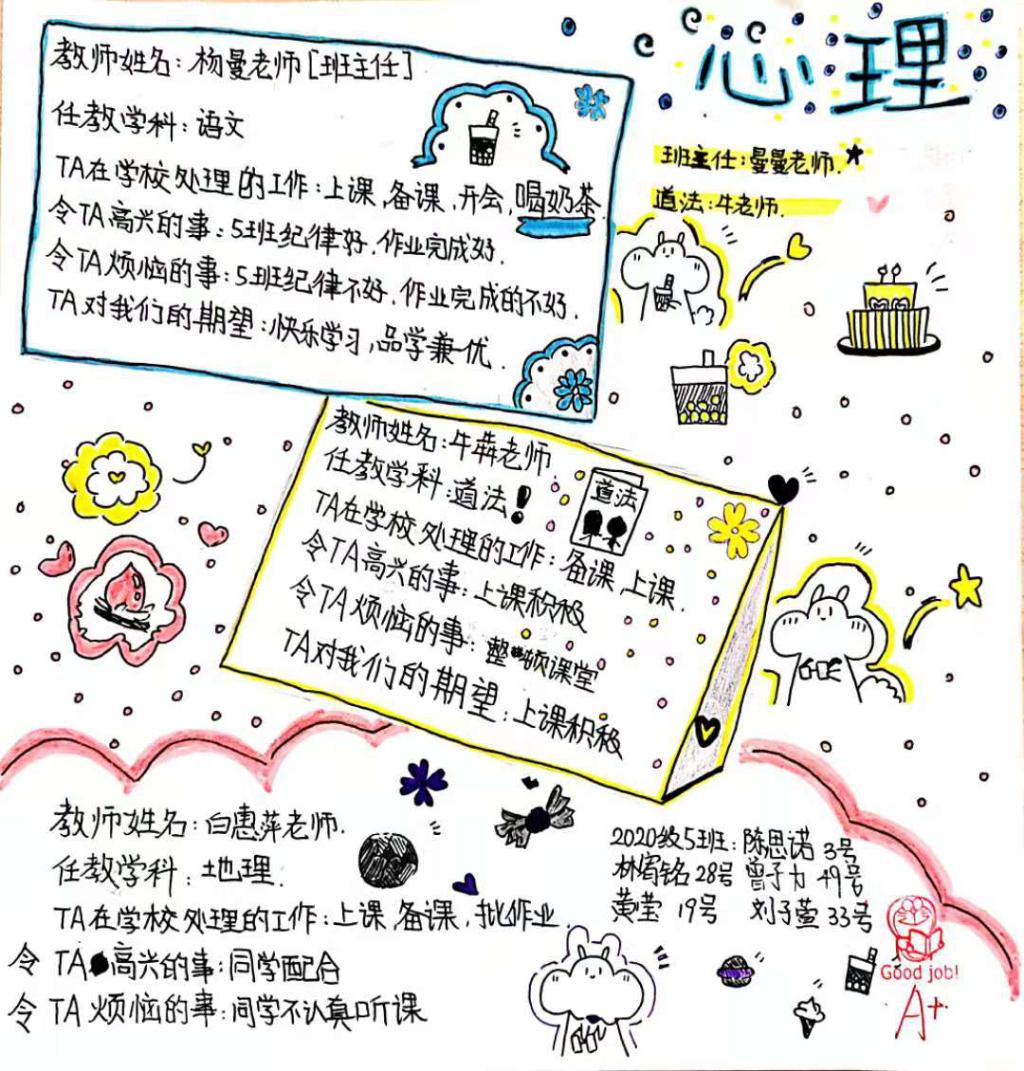 心理
教师姓名:杨曼老师[班主任]
任教学科:语文
TA在学校处理的工作:上课,备课,开会,喝奶茶.
令TA高兴的事:5班纪律好.作业完成好.
令TA烦恼的事:5班纪律不好.作业完成的不好.
TA对我们的期望:快乐学习,品学兼优.
班主任:曼曼老师.
道法:牛老师.
教师姓名:牛犇老师.
任教学科:道法!
道法
TA在学校处理的工作:备课,上课.
令TA高兴的事:上课积极
令TA烦恼的事:整顿课堂
TA对我们的期望:上课积极
教师姓名:白惠萍老师.
任教学科:地理.
TA在学校处理的工作:上课,备课,批作业.
令TA高兴的事:同学配合
令TA烦恼的事:同学不认真听课
2020级5班:陈思诺 3号
林宥铭28号 曾子力 49号
黄莹 19号 刘子萱 33号
Good job!
A+